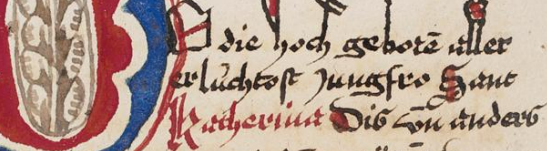 O die hoch geborē aller
erlúchtost Jungfro Sant
Katherina Dis von anders